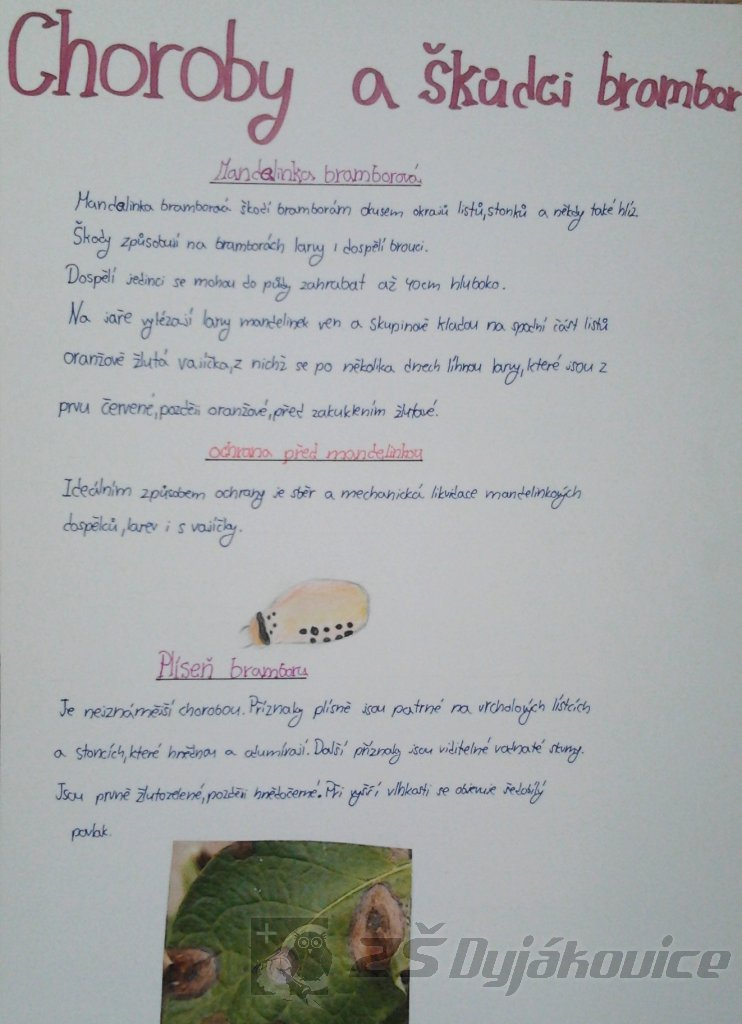 Choroby a škůdci brambor
Mandelinka bramborová
Mandelinka bramborová škodí bramborám okusem okrajů listů, stonků a někdy také hlíz.
Škody způsobují na bramborách larvy i dospělí brouci.
Dospělí jedinci se mohou do půdy zahrabat až 40cm hluboko.
Na jaře vylézají larvy mandelinek ven a skupinově kladou na spodní část listů
oranžově žlutá vajíčka, z nichž se po několika dnech líhnou larvy, které jsou z
prvu červené, později oranžové, před zakuklením žluté.
ochrana před mandelinkou
Ideálním způsobem ochrany je sběr a mechanická likvidace mandelinkových
dospělců, larev i s vajíčky.
Plíseň bramboru
Je nejznámější chorobou. Příznaky plísně jsou patrné na vrcholových lístcích
a stoncích, které hnědnou a odumírají. Další příznaky jsou viditelné vodnaté skvrny.
Jsou prvně žlutozelené, později hnědočerné. Při vyšší vlhkosti se objevuje šedobílý
povlak.
ZŠ Dyjákovice